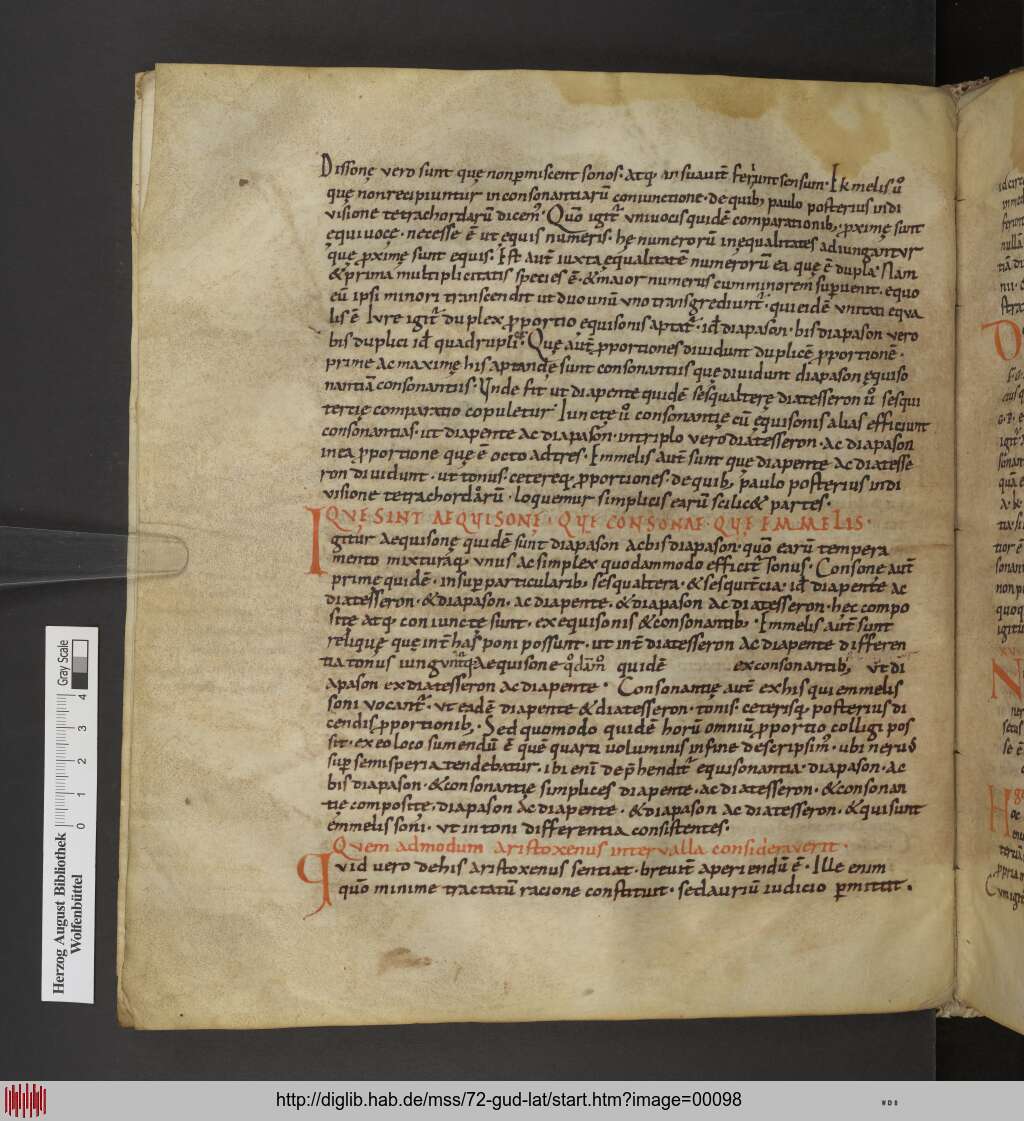 Dissonę vero sunt quę nonpmiscent sonos· atq· insuavit̄ feriunt sensum· Ekmelis ů
quę nonrecipiuntur inconsonantiarū coniunctione· de quib; paulo posterius indi
visione tetrachordarū dicem̄· Quō igit̄ univocis quidē comparationib; pximę sunt
equivocę· necesse ē ut equis numeris· hę numerorū inequalitates adiungantur
quę pximę sunt equis· Est aut̄ iuxta equalitatē numerorū ea quę ē dupla· Nam
& prima multiplicitatis species ē· & maior numerus cum minorem supvenit· equo
eū ipsi minori transcendit ut duo unū uno transgrediunt̄· qui eidē unitati equa
lis ē Iure igit̄ duplex pportio equisonis aptat̄· id diapason· bis diapason vero
bis duplici id quadrupli· Quę aut̄ pportiones dividunt duplicē pportionē·
primę ac maximę his aptandę sunt consonantiis quę dividunt diapason ęquiso
nantiā consonantiis· Unde fit ut diapente quidē sesqualterę diatesseron ů sesqui
tertię comparatio copuletur· Iunctę ů consonantię cū ęquisonis alias efficiunt
consonantias· ut diapente ac diapason· in triplo vero diatesseron· ac diapason
in ea pportione quę ē octo ad tres· Emmelis aut̄ sunt quę diapente ac diatesse
ron dividunt· ut tonus· ceteręq· pportiones· de quib; paulo posterius indi
visione tetrachordarum· loquemur simplicis earū scilic& partes·
QVE SINT AEQVISONĘ· QVE CONSONAE· QVE EMMELIS·
Igitur aequisonę quidē sunt diapason ac bis diapason· quō earū tempera
mento mixturaq; unus ac simplex quodammodo efficit̄ sonus· Consone aut̄
prime quidē· insup particularib; sesqualtera· & sesquitercia· id diapente ac
diatesseron· & diapason· ac diapente· & diapason ac diatesseron· hęc compo
sitę atq· coniunctę sunt· ex equisonis & consonantib;· Emmelis aut̄ sunt
reliquę quę int̄ has poni possunt· ut int̄ diatesseron ac diapente differen
tia tonus iung Aequisone quidē ex consonantib; ut di
apason ex diatesseron ac diapente· Consonantię aut̄ ex his qui emmelis
soni vocant̄· ut eadē diapente & diatesseron· tonis· ceterisq; posterius di
cendis pportionib;· Sed quomodo quidē horū omniū pportio colligi pos
sit· ex eo loco sumendū ē quē quarti voluminis in fine descripsim̄· ubi nervo
sup semisperia tendebatur· ibi enī dephendit̄ equisonantia· diapason· ac
bis diapason· & consonantię simplices diapente· ac diatesseron· & consonan
tię compositę, diapason ac diapente· & diapason ac diatesseron· & qui sunt
emmelis soni· ut in toni differentia consistentes·
Quem admodum aristoxenus intervalla consideraverit·
Quid vero de his aristoxenus sentiat· brevit̄ aperiendū ē· Ille enim
quō minime tractatū racione constituit· sed auriū iudicio pmittit·
Herzog August Bibliothek
Wolfenbüttel
Gray Scale
0 1 2 3 4
http://diglib.hab.de/mss/72-gud-lat/start.htm?image=00098